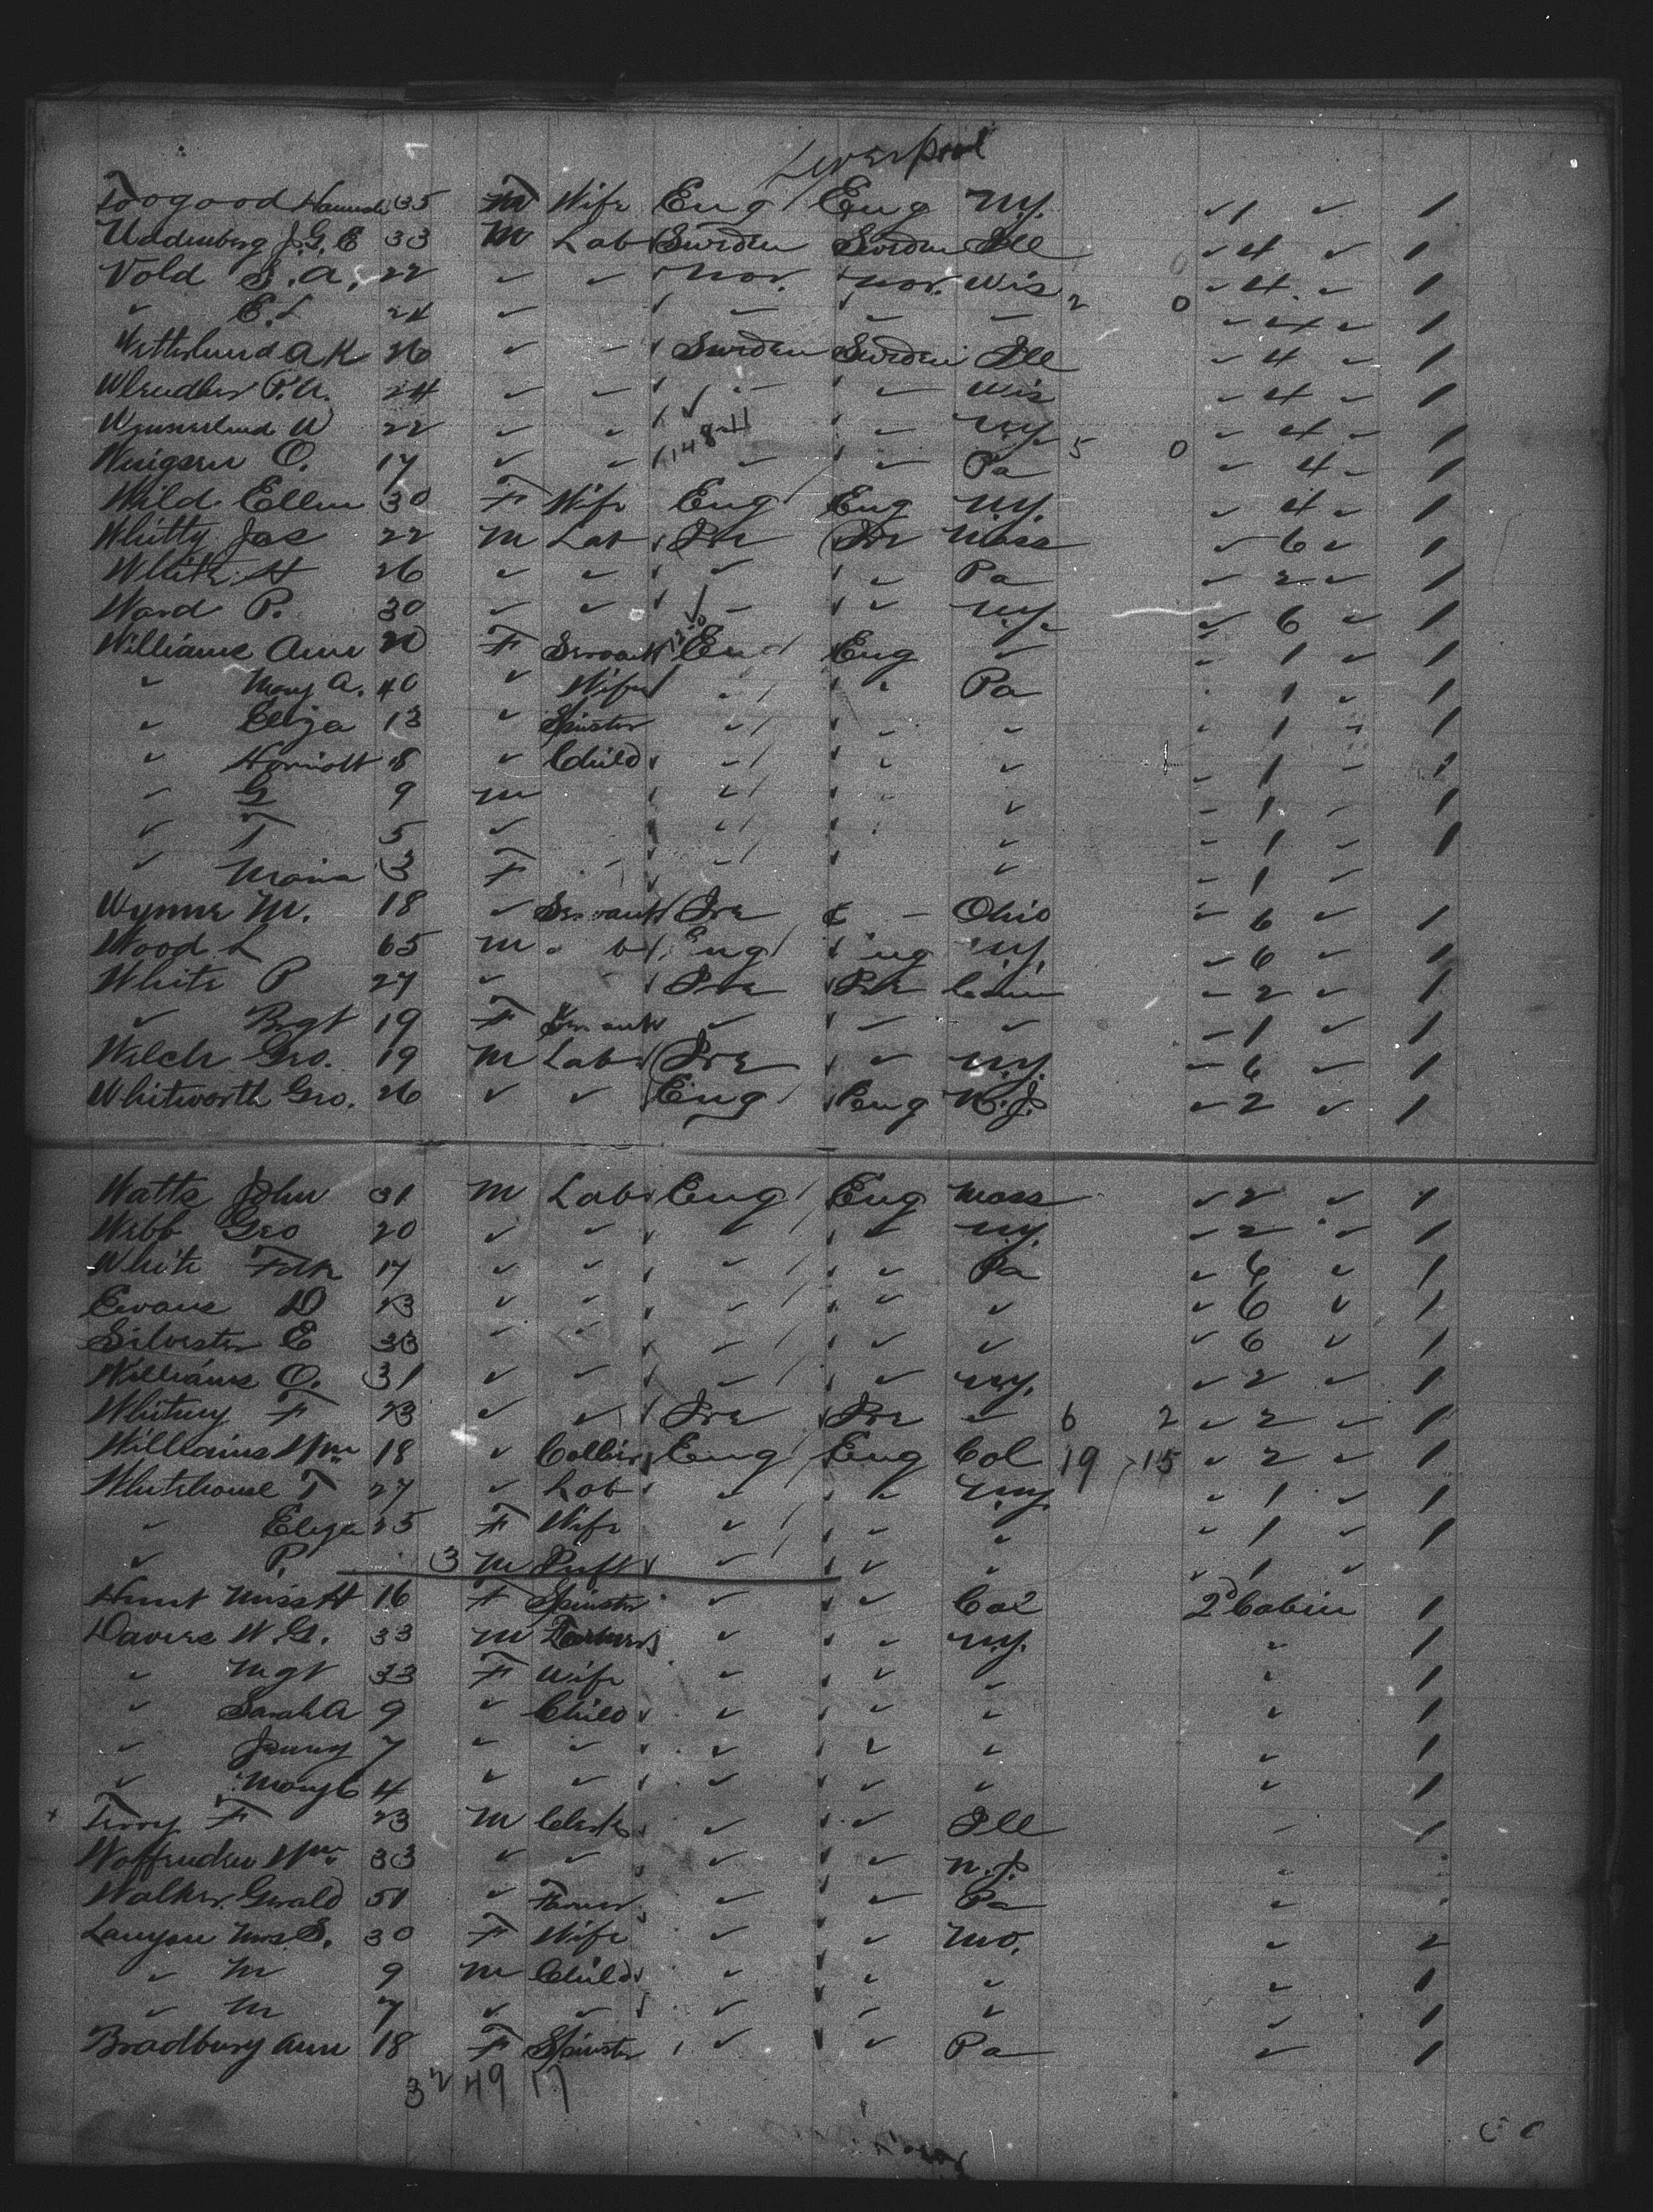 Liverpool
Toogood Hannah 35 F Wife Eng Eng N.Y. ✓ 1 ✓ 1
Uddenberg J.G.E 33 M Lab Sweden Sweden Ill ✓ 4 ✓ 1
Vold S.A. 22 ✓ ✓ Nor. Nor. Wis 2 0 ✓ 4 ✓ 1
✓ E.L 24 ✓ ✓ ✓ ✓ ✓ 4 ✓ 1
Wetterlund A K 26 ✓ ✓ Sweden Sweden Ill ✓ 4 ✓ 1
P.A. 24 ✓ ✓ ✓ ✓ Wis ✓ 4 ✓ 1
W 22 ✓ ✓ ✓ N.Y. 5 0 ✓ 4 ✓ 1
O. 17 ✓ ✓ ✓ ✓ Pa ✓ 4 ✓ 1
Wild Ellen 30 F Wife Eng Eng N.Y. ✓ 4 ✓ 1
Whitty Jas 22 M Lab Ire Ire Mass ✓ 6 ✓ 1
White H 26 ✓ ✓ ✓ ✓ Pa ✓ 2 ✓ 1
Ward P. 30 ✓ ✓ ✓ ✓ N.Y. ✓ 6 ✓ 1
Williams Ann 20 F Servant Eng Eng ✓ ✓ 1 ✓ 1
✓ Mary A. 40 ✓ Wife ✓ ✓ Pa 1 ✓ 1
✓ Eliza 13 ✓ Spinster ✓ ✓ ✓ ✓ 1 ✓ 1
✓ Harriott 8 ✓ Child ✓ ✓ ✓ ✓ 1 ✓ 1
✓ G 9 M ✓ ✓ ✓ 1 ✓ 1
✓ T 5 ✓ ✓ ✓ ✓ 1 ✓ 1
✓ Maria 3 F ✓ ✓ ✓ 1 ✓
Wynne M. 18 ✓ Servant Ire ✓ Ohio ✓ 6 ✓ 1
Wood L 65 M Eng Eng N.Y. ✓ 6 ✓ 1
White P 27 ✓ Ire Ire Conn ✓ 2 ✓ 1
✓ Brgt 19 F Servant ✓ ✓ ✓ ✓ 1 ✓ 1
Welch Geo. 19 M Lab Ire ✓ N.Y. ✓ 6 ✓ 1
Whitworth Geo. 26 ✓ ✓ Eng Eng N.J. ✓ 2 ✓ 1
Watts John 31 M Lab Eng Eng Mass ✓ 2 ✓ 1
Webb Geo 20 ✓ ✓ ✓ ✓ N.Y. ✓ 2 ✓ 1
White Fdk 17 ✓ ✓ ✓ ✓ Pa ✓ 6 ✓ 1
Evans D 23 ✓ ✓ ✓ ✓ ✓ ✓ 6 ✓ 1
Silvester E 33 ✓ ✓ ✓ ✓ ✓ ✓ 6 ✓ 1
Williams O. 31 ✓ ✓ ✓ ✓ N.Y. ✓ 2 ✓ 1
Whitney F 23 ✓ ✓ Ire Ire ✓ 6 2 ✓ 2 ✓ 1
Williams Wm 18 ✓ Collier Eng Eng Col 19 15 ✓ 2 ✓ 1
Whitehouse T 27 ✓ Lab ✓ ✓ N.Y. ✓ 1 ✓ 1
✓ Eliza 25 F Wife ✓ ✓ ✓ ✓ 1 ✓ 1
✓ P. 3 M Inft ✓ ✓ ✓ ✓ 1 ✓
Hunt Miss H 16 F Spinster ✓ ✓ Cal 2d Cabin 1
Davies W.G. 33 M Farmer ✓ ✓ N.Y. ✓ 1
✓ Mgt 33 F Wife ✓ ✓ ✓ ✓ 1
✓ Sarah A 9 ✓ Child ✓ ✓ ✓ ✓ 1
✓ Jenny 7 ✓ ✓ ✓ ✓ ✓ ✓ 1
✓ Mary C 4 ✓ ✓ ✓ ✓ ✓ ✓ 1
x Terry F 23 M Clerk ✓ ✓ Ill ✓ 1
Woffenden Wm 33 ✓ ✓ ✓ ✓ N.J. ✓
Walker Gerald 51 ✓ Farmer ✓ ✓ Pa ✓
Lanyon Mrs S. 30 F Wife ✓ ✓ Mo. ✓ 2
✓ M 9 M Child ✓ ✓ ✓ ✓ 1
✓ M 7 ✓ ✓ ✓ ✓ ✓ ✓ 1
Bradbury Ann 18 F Spinster ✓ ✓ Pa ✓ 1
32 49 17